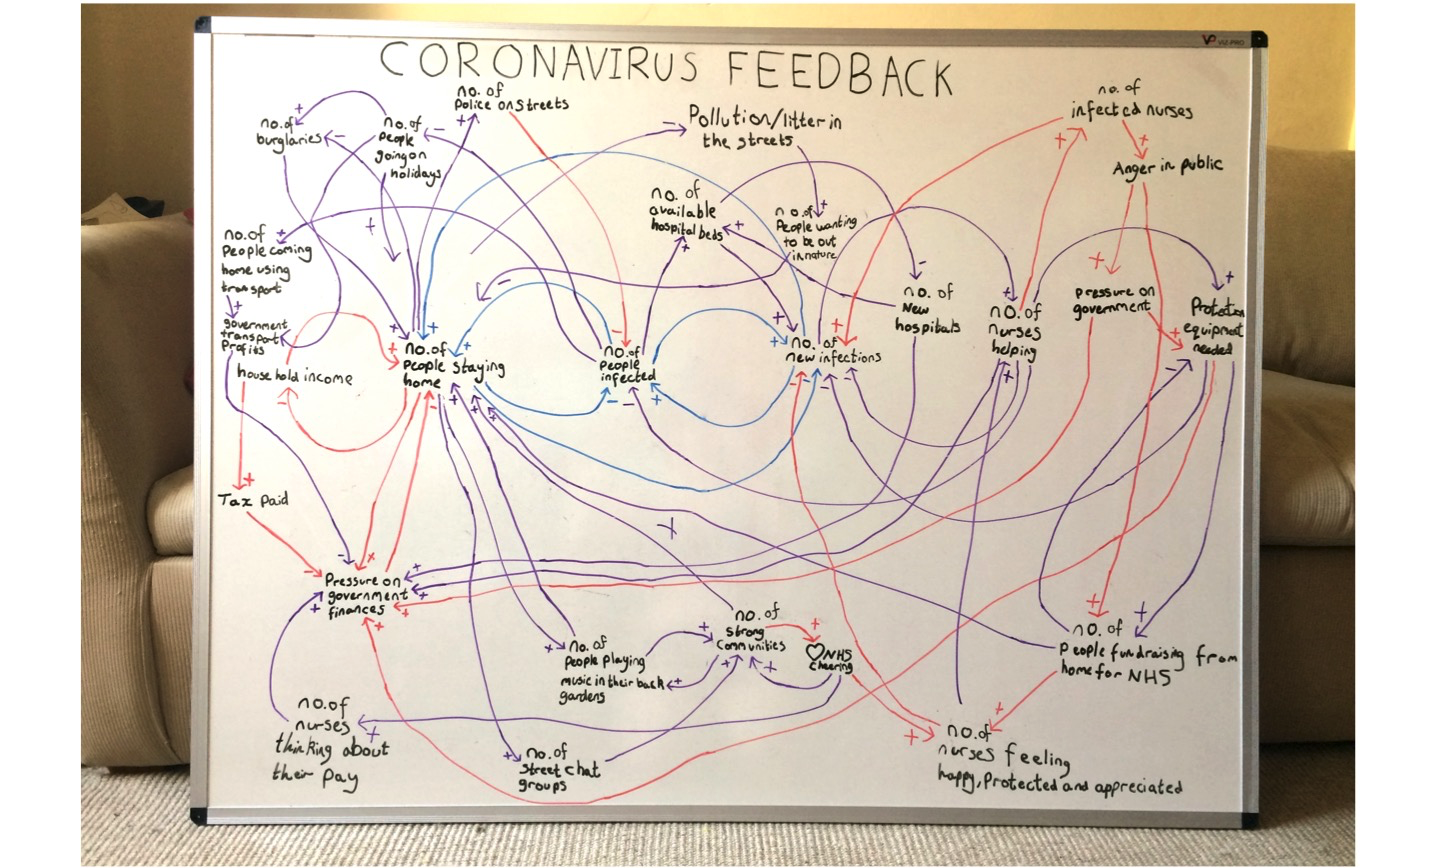 CORONAVIRUS FEEDBACK
VP VIZ-PRO
no. of
Police on Streets
no. of
burglaries
no. of
People
going on
holidays
Pollution/litter in
the streets
no. of
infected nurses
Anger in public
no. of
available
hospital beds
no. of
People wanting
to be out
in nature
no. of
People coming
home using
transport
government
transport
Profits
house hold income
no. of
People staying
home
no. of
People
infected
no. of
new infections
no. of
New
hospitals
no. of
nurses
helping
pressure on
government
Protection
equipment
needed
Tax paid
Pressure on
government
finances
no. of
People playing
music in their back
gardens
no. of
strong
Communities
NHS
cheering
no. of
People fundraising from
home for NHS
no. of
nurses
thinking about
their pay
no. of
Street chat
groups
no. of
nurses feeling
happy, Protected and appreciated